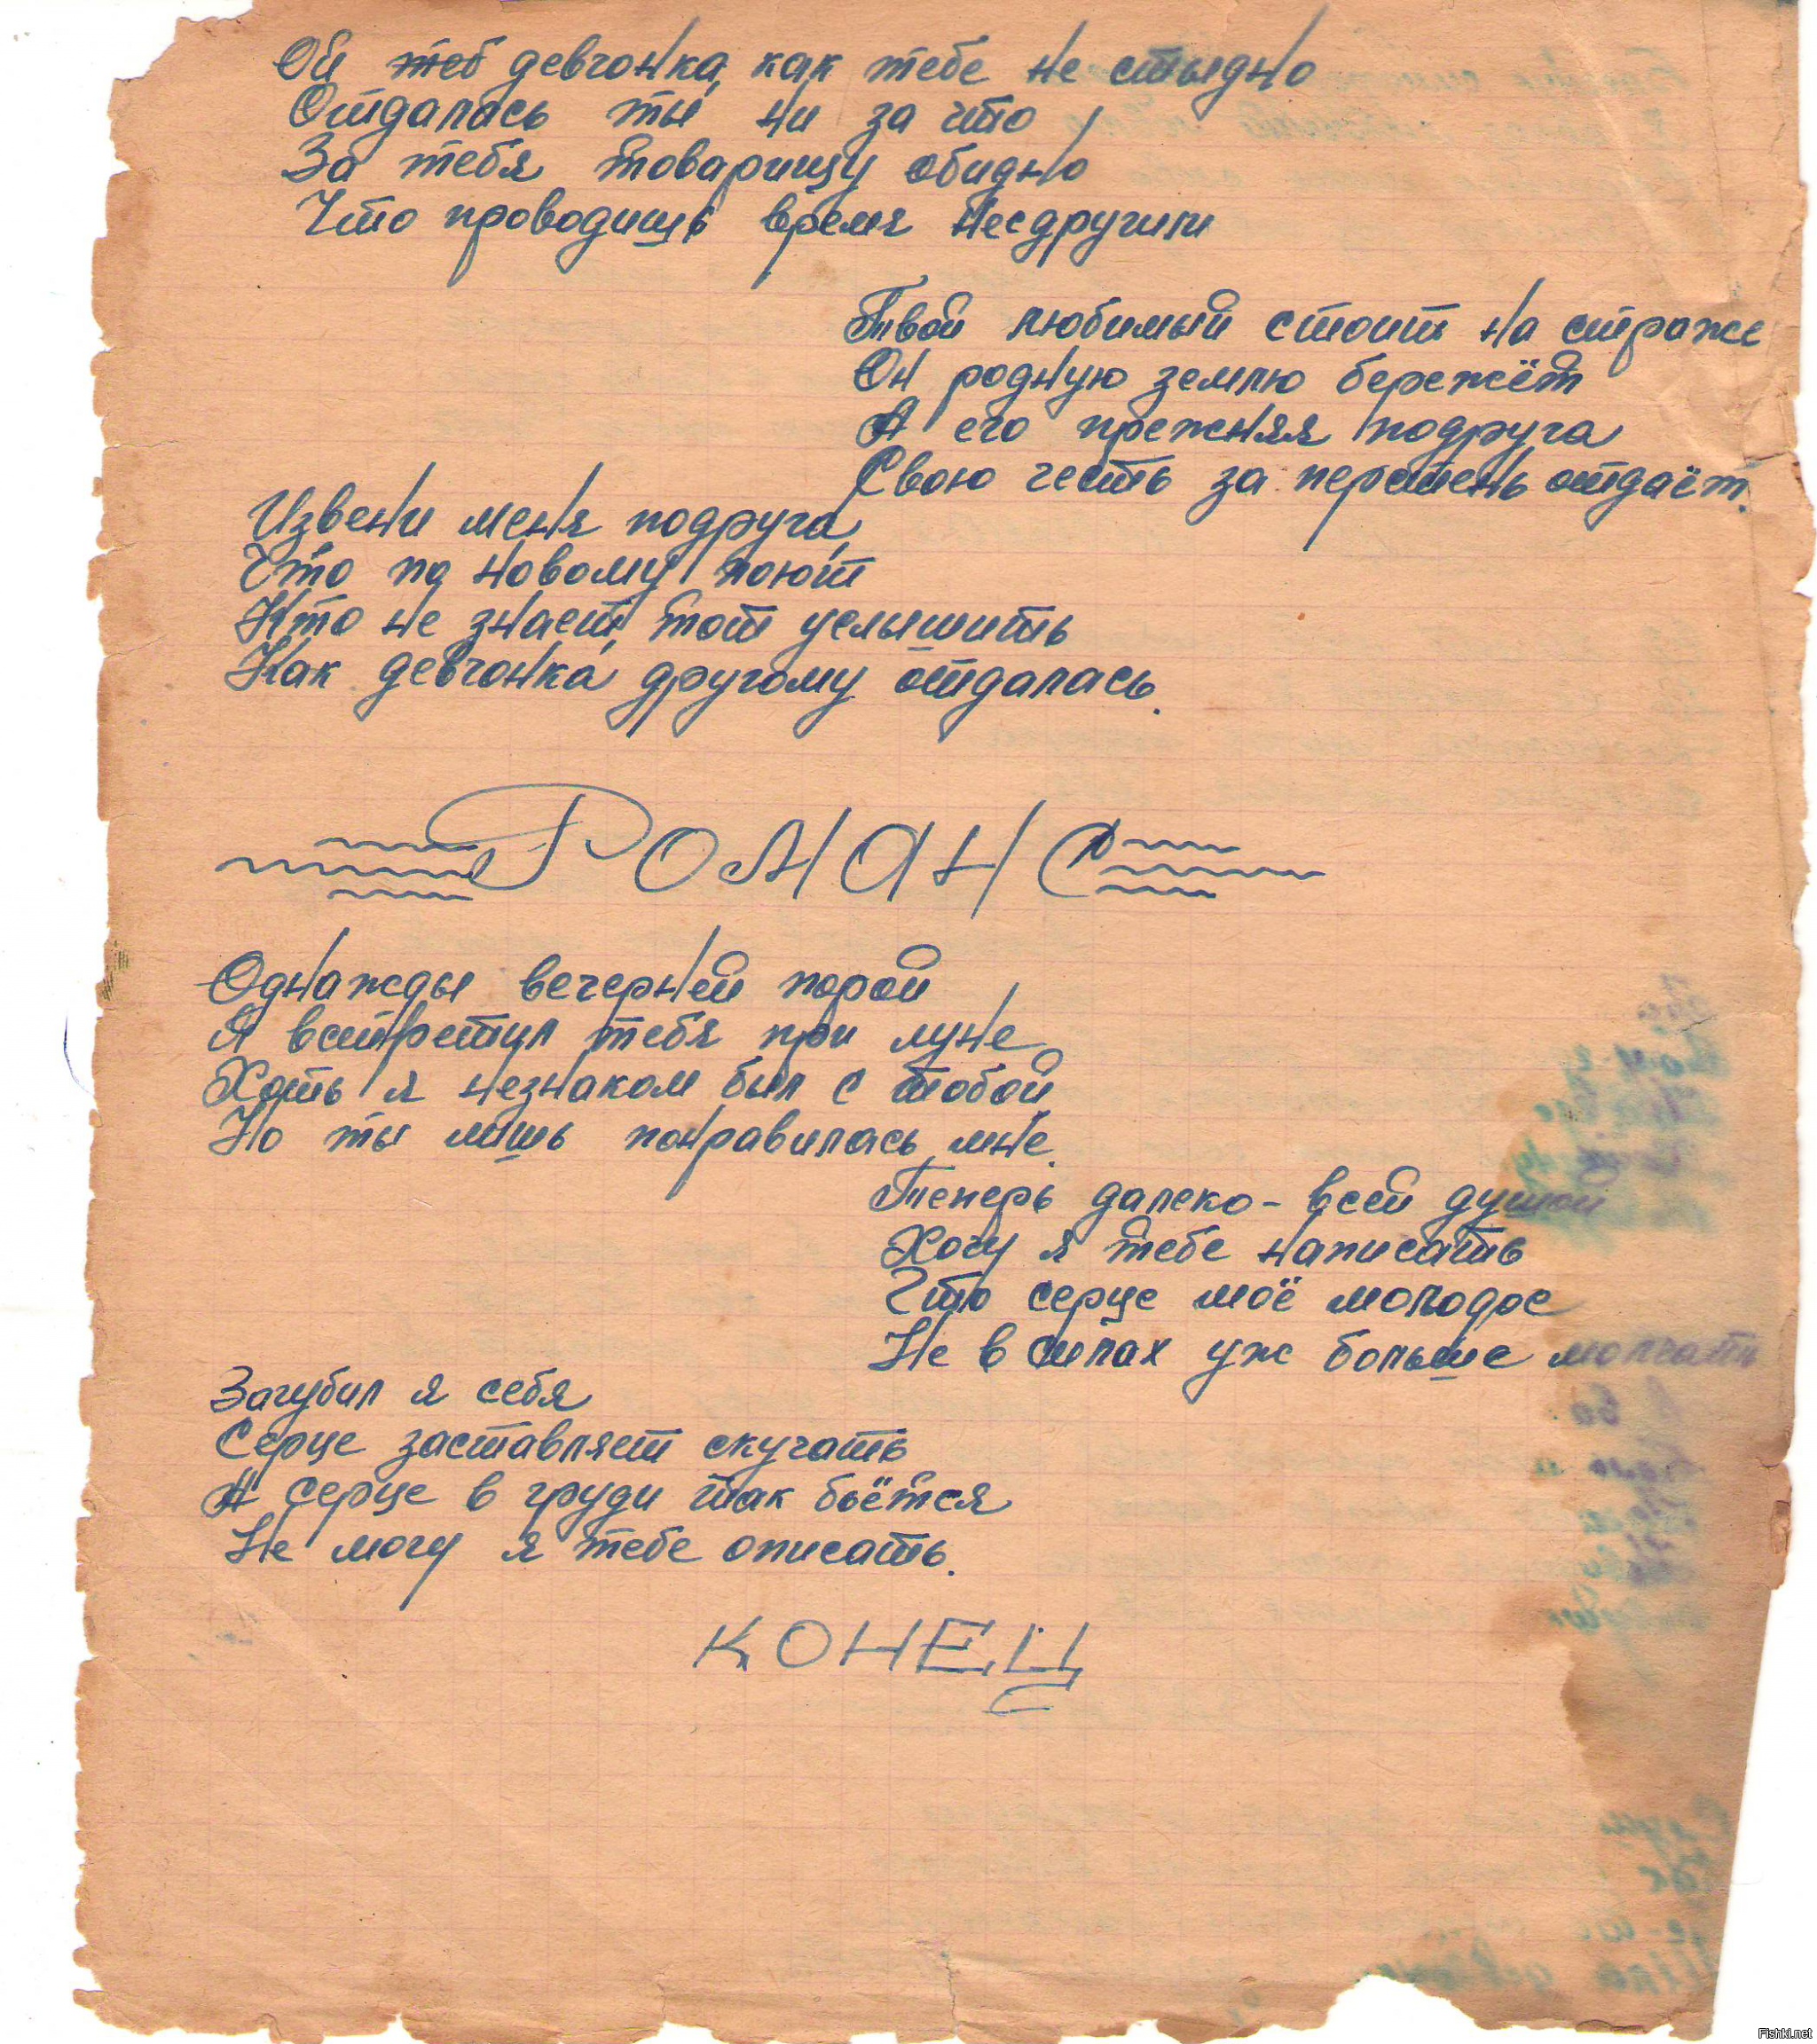 Ой теб девчонка, как тебе не стыдно
Отдалась ты ни за что
За тебя товарищу обидно
Что проводишь время несдругим
Твой любимый стоит на страже
Он родную землю бережёт
А его прежняя подруга
Свою честь за перстень отдаёт.
Извени меня подруга,
Что по новому поют
Кто не знает, тот услышить
Как девчонка другому отдалась.
РОМАНС
Однажды вечерней порой
Я встретил тебя при луне
Хоть я незнаком был с тобой
Но ты лишь понравилась мне.
Теперь далеко - всей душой
Хочу я тебе написать
Что серце моё молодое
Не в силах уж больше молчать
Загубил я себя
Серце заставляет скучать
А серце в груди так бьётся
Не могу я тебе описать.
КОНЕЦ
Fishki.net